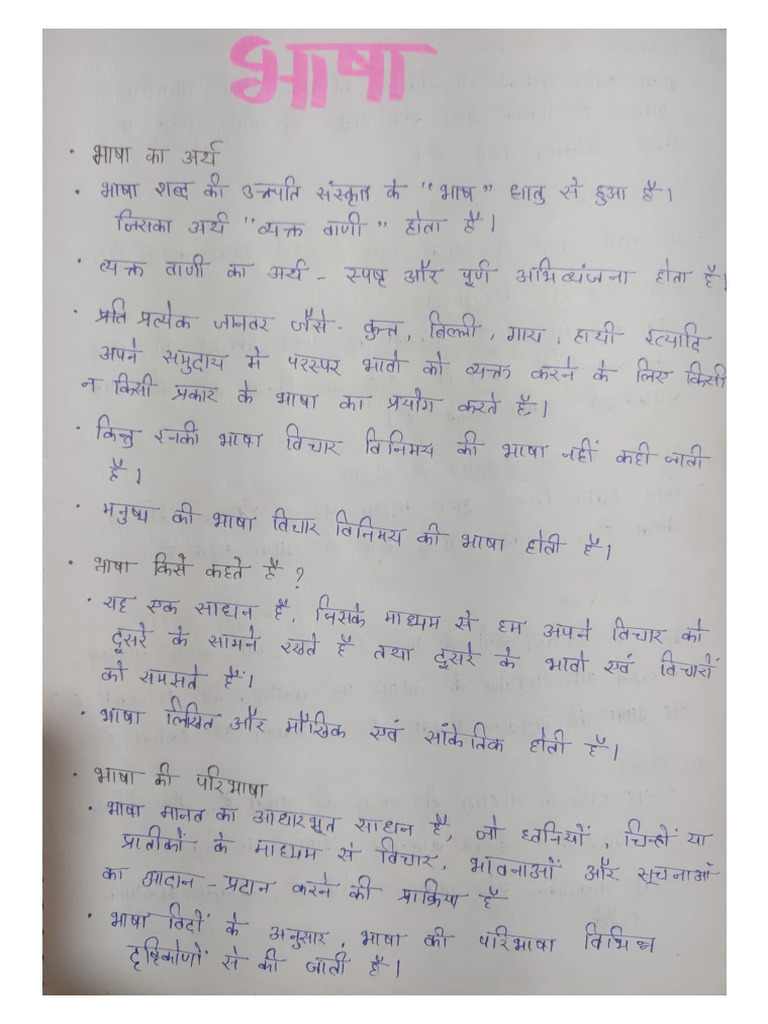 भाषा
• भाषा का अर्थ
• भाषा शब्द की उत्त्पति संस्कृत के "भाष" धातु से हुआ है।
जिसका अर्थ "व्यक्त वाणी" होता है।
• व्यक्त वाणी का अर्थ - स्पष्ट और पूर्ण अभिव्यंजना होता है।
• प्रति प्रत्येक जानवर जैसे - कुत्त, बिल्ली, गाय, हाथी इत्यादि
अपने समुदाय मे परस्पर भावो को व्यक्त करने के लिए किसी
न किसी प्रकार के भाषा का प्रयोग करते है।
• किन्तु इनकी भाषा विचार विनिमय की भाषा नहीं कही जाती
है।
• मनुष्य की भाषा विचार विनिमय की भाषा होती है।
• भाषा किसे कहते है ?
• यह एक साधन है, जिसके माध्यम से हम अपने विचार को
दूसरे के सामने रखते है तथा दूसरे के भावो एवं विचारों
को समझते हैं।
• भाषा लिखित और मौखिक एवं सांकेतिक होती है।
• भाषा की परिभाषा
• भाषा मानव का आधारभूत साधन है, जो ध्वनियों, चिन्हों या
प्रातीकों के माध्यम से विचार, भावनाओं और सूचनाओं
का आदान - प्रदान करने की प्राक्रिया है
• भाषा विदों के अनुसार, भाषा की परिभाषा विभिन्न
दृष्टिकोणों से की जाती है।